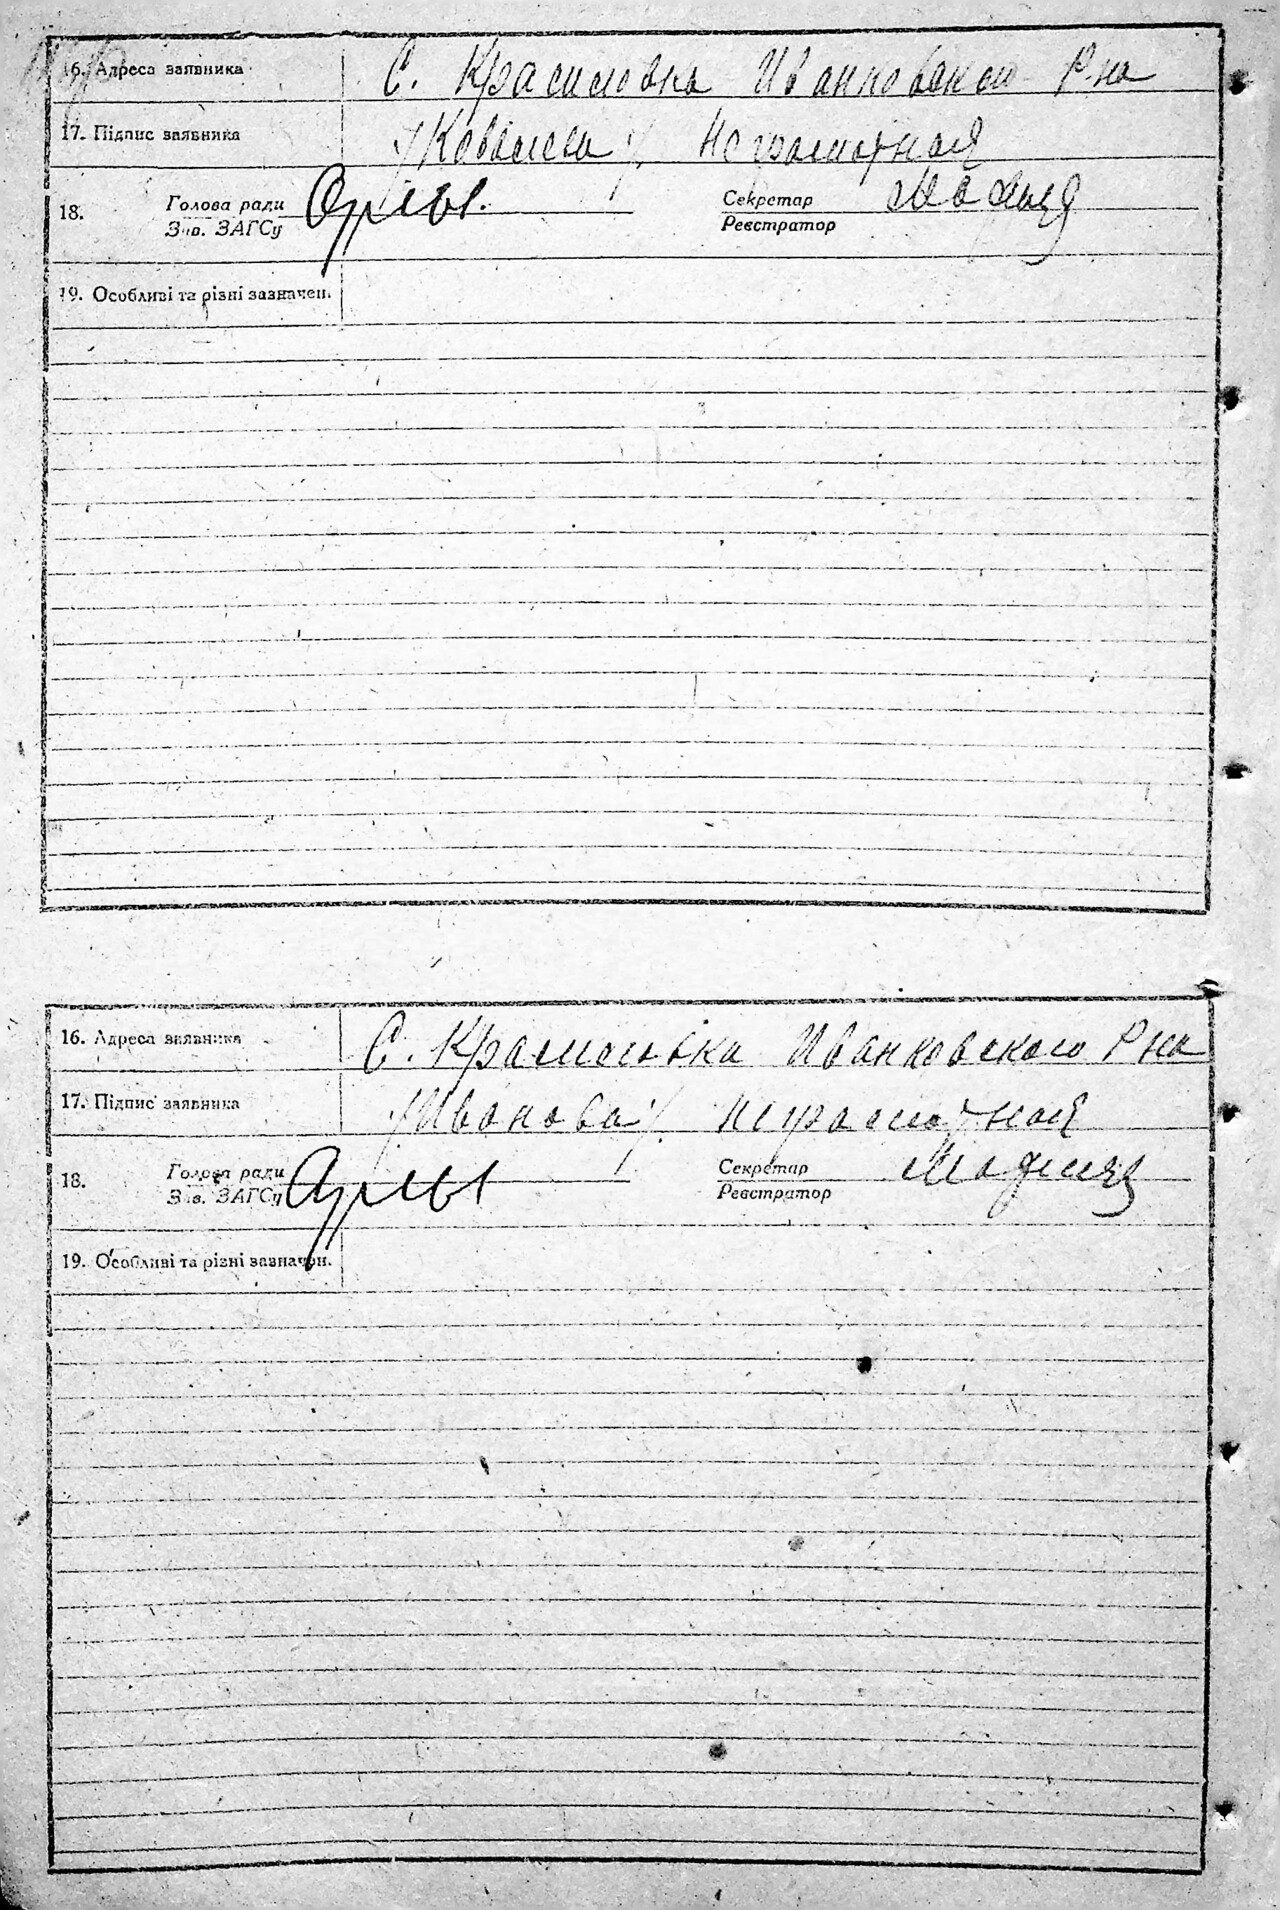 16. Адреса заявника С. Красиловка Иванковского Р-на
17. Підпис заявника /Ковалева/ Неграмотная
18. Голова ради Секретар
Зав. ЗАГСу Реєстратор
19. Особливі та різні зазначен.
16. Адреса заявника С. Красиловка Иванковского Р-на
17. Підпис заявника /Иванова/ неграмотная
18. Голова ради Секретар
Зав. ЗАГСу Реєстратор
19. Особливі та різні зазначен.